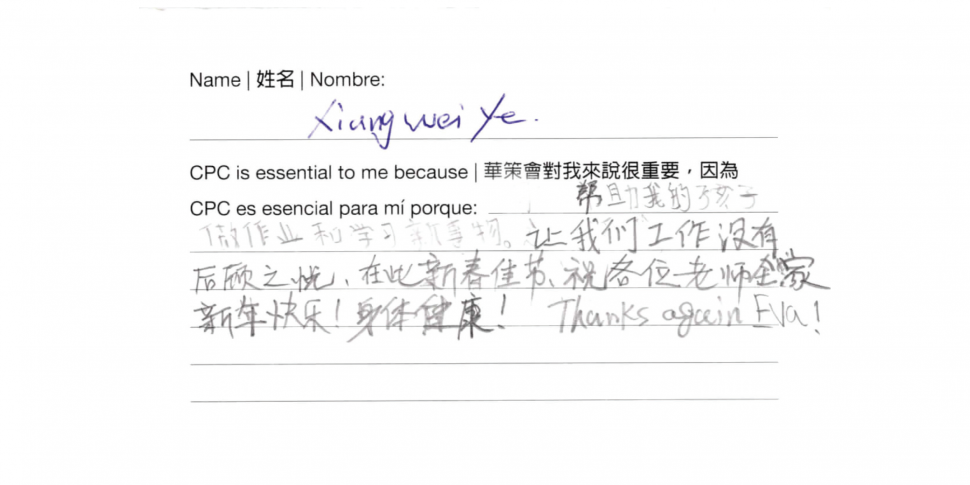 Name | 姓名 | Nombre:
Xiangwei Ye.
CPC is essential to me because | 華策會對我來說很重要，因為
CPC es esencial para mí porque: 帮助我的孩子
做作业和学习新事物。让我们工作没有
后顾之忧、在此新春佳节、祝各位老师全家
新年快乐！身体健康！ Thanks again Eva!